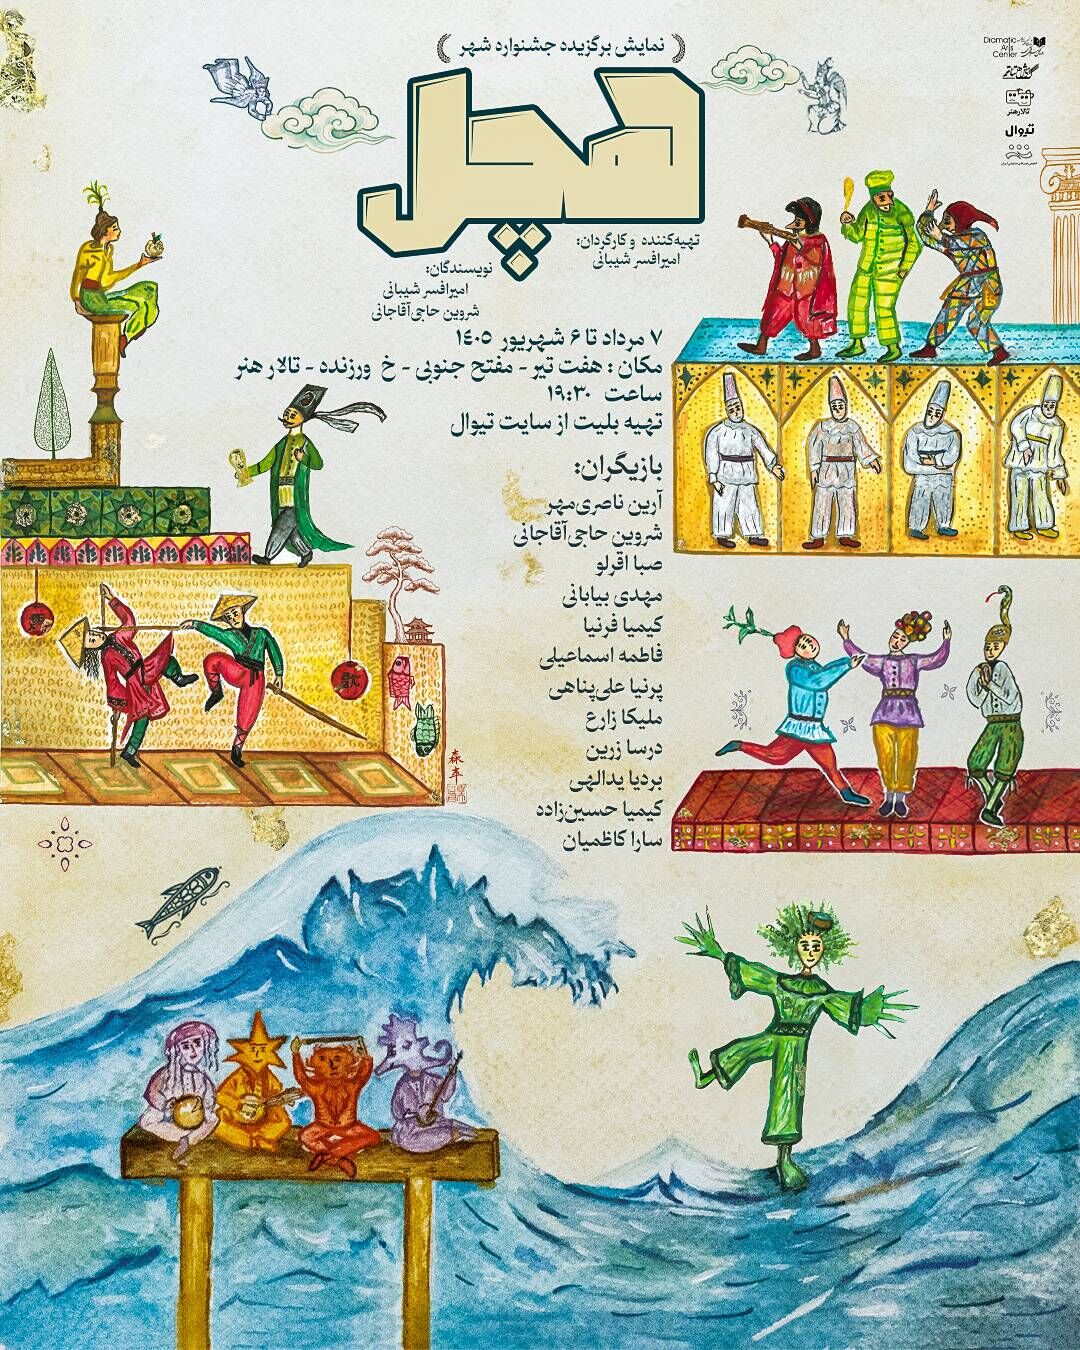 نمایش برگزیده جشنواره شهر
هچل
تهیه‌کننده و کارگردان:
امیرافسر شیبانی
نویسندگان:
امیرافسر شیبانی
شروین حاجی‌آقاجانی
۷ مرداد تا ۶ شهریور ۱۴۰۵
مکان : هفت تیر - مفتح جنوبی - خ ورزنده - تالار هنر
ساعت ۱۹:۳۰
تهیه بلیت از سایت تیوال
بازیگران:
آرین ناصری‌مهر
شروین حاجی‌آقاجانی
صبا اقرلو
مهدی بیابانی
کیمیا فرنیا
فاطمه اسماعیلی
پرنیا علی‌پناهی
ملیکا زارع
درسا زرین
بردیا یدالهی
کیمیا حسین‌زاده
سارا کاظمیان
Dramatic
Arts
Center
تالارهنر
تیوال